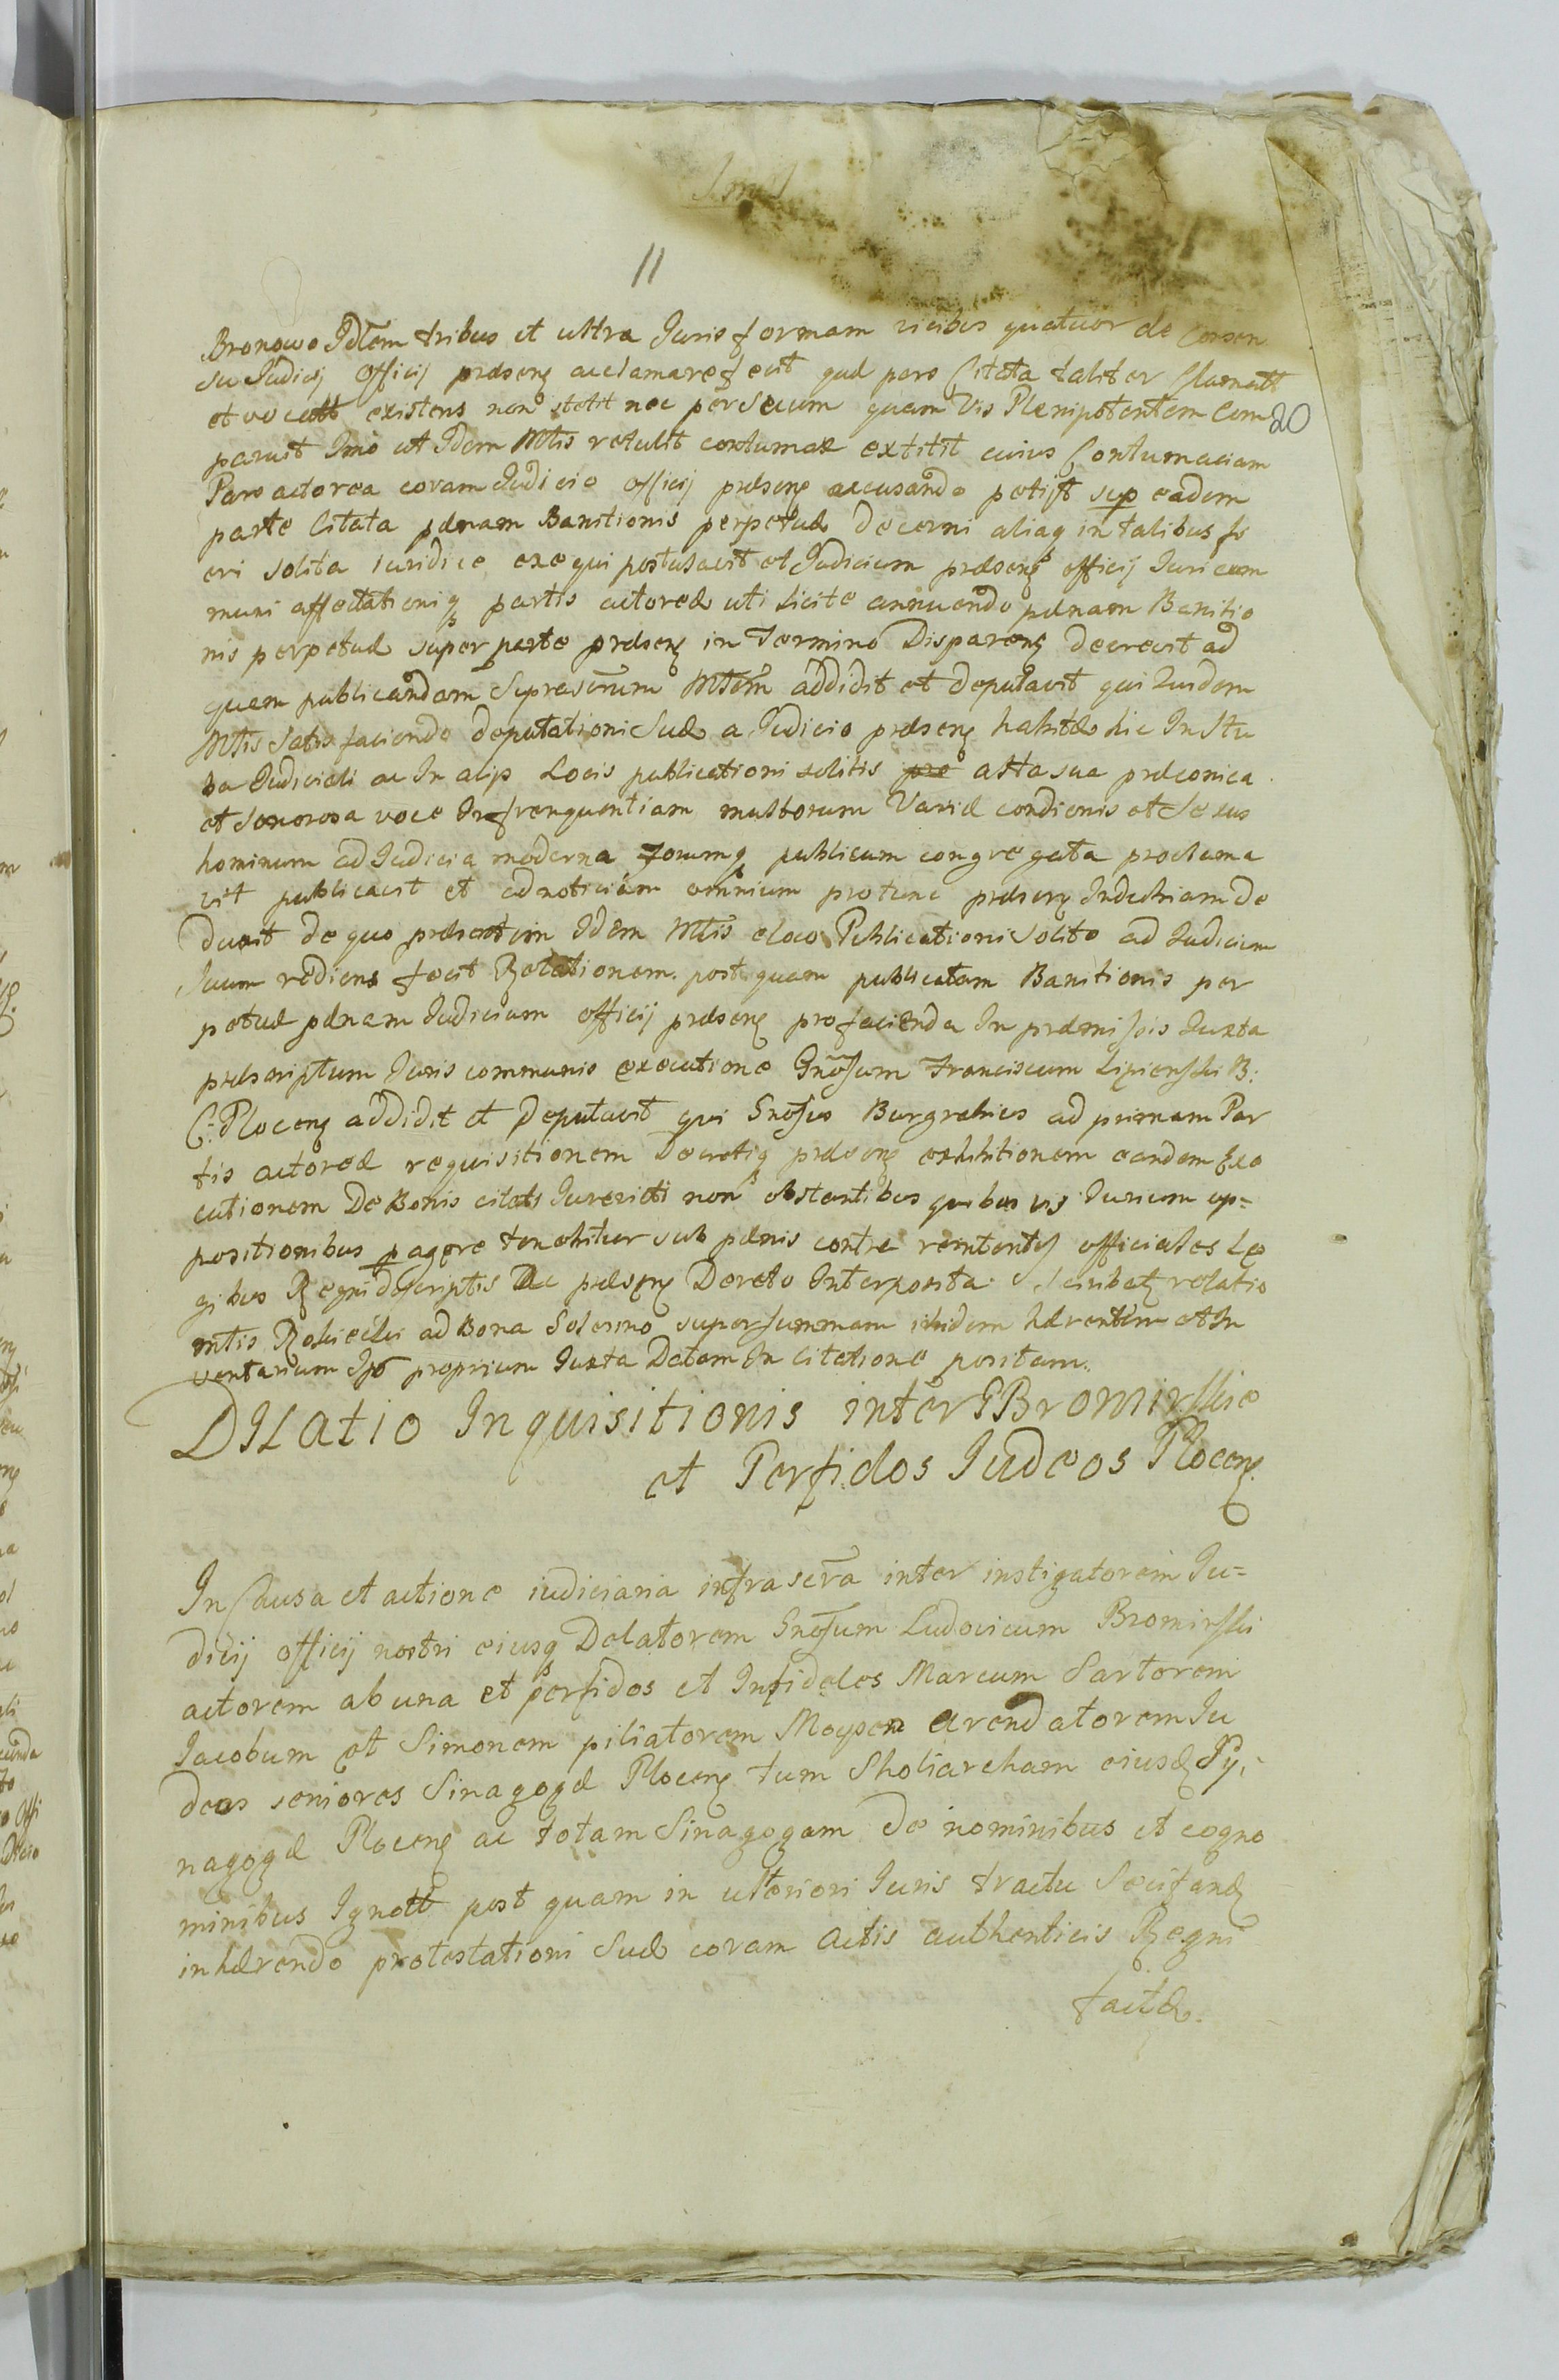 11
20
Bronowo Idem tribus et ultra Juris formam vicibus quatuor de Consen
su Judicij Officij præseng acclamare fecit quæ pars Citata taliter Clamatt
et vocatt existens non stetit nec per Secum quam Vis Plenipotentem Com
paruit Imo ut Idem Mtis retulit contumax extitit cuius Contumaciam
Pars actorea coram Judicio officij præseng accusando petijt sup eadem
parte Citata pænam Banitionis perpetuæ decerni aliaq in talibus fi
eri solita iuridice exequi postulavit et Judicium præseng officij Juri com
muni affectationiq partis actoreæ uti licite annuendo pænam Banitio
nis perpetuæ super parte præseng in Termino Dispareng decrevit ad
quam publicandam Suprascrum Mtem addidit et deputavit qui quidem
Mtis Satis faciendo deputationi Suæ a Judicio præseng habitæ hic In Stu
ba Judiciali ac In alijs Locis publicationi solitis pre alta sua præconica
et sonorosa voce In frenquentiam multorum Variæ condionis et Sexus
hominum ad Judicia moderna Forumq publicum congregata proclama
vit publicavit et ad noticiam omnium protunc præseng Industriam de
duxit de quo præsentim Idem Mtis eloco Publicationi solito ad Judicium
suum rediens fecit Relationem post quam publicatam Banitionis per
petuæ pænam Judicium officij præseng pro facienda In præmissis Juxta
præscriptum Juris communis executione Gnosum Franciscum Lipienski B:
C: Ploceng addidit et Deputavit qui Gnosus Burgrabius ad primam Par
tis actoreæ requisitionem Decretiq præseng exhibitionem eandem Exe
cutionem De Bonis citati Jurevicti non obstantibus quibus vis Jurium op=
positionibus pagere tenebitur sub pænis contra renitentes officiales Le
gibus Regni descriptis præseng Decreto Interposita Scribatq relatio
mtis ad Bona super summam ibidem hærentem et In
ventarium Ipo proprium Juxta Datam In citatione positam.
DILatio Inquisitionis inter GBromirskie
et Perfidos Iudeos Ploceng
In Causa et actione iudiciaria infrascra inter instigatorem Ju=
dicij officij nostri eiusq Delatorem Gnosum Ludovicum Bromirski
actorem ab una et perfidos et Infideles Marcum Sartorem
Jacobum et Simonem piliatorem Moysen Arendatorem Ju
deos seniores Sinagogæ Ploceng tum Sholiarcham eiusq Sy,
nagogæ Ploceng ac totam Sinagogam de nominibus et cogno
minibus Ignott post quam in ulteriori Juris tractu
inhærendo protestationi Suæ coram Actis authenticis Regni
factæ.